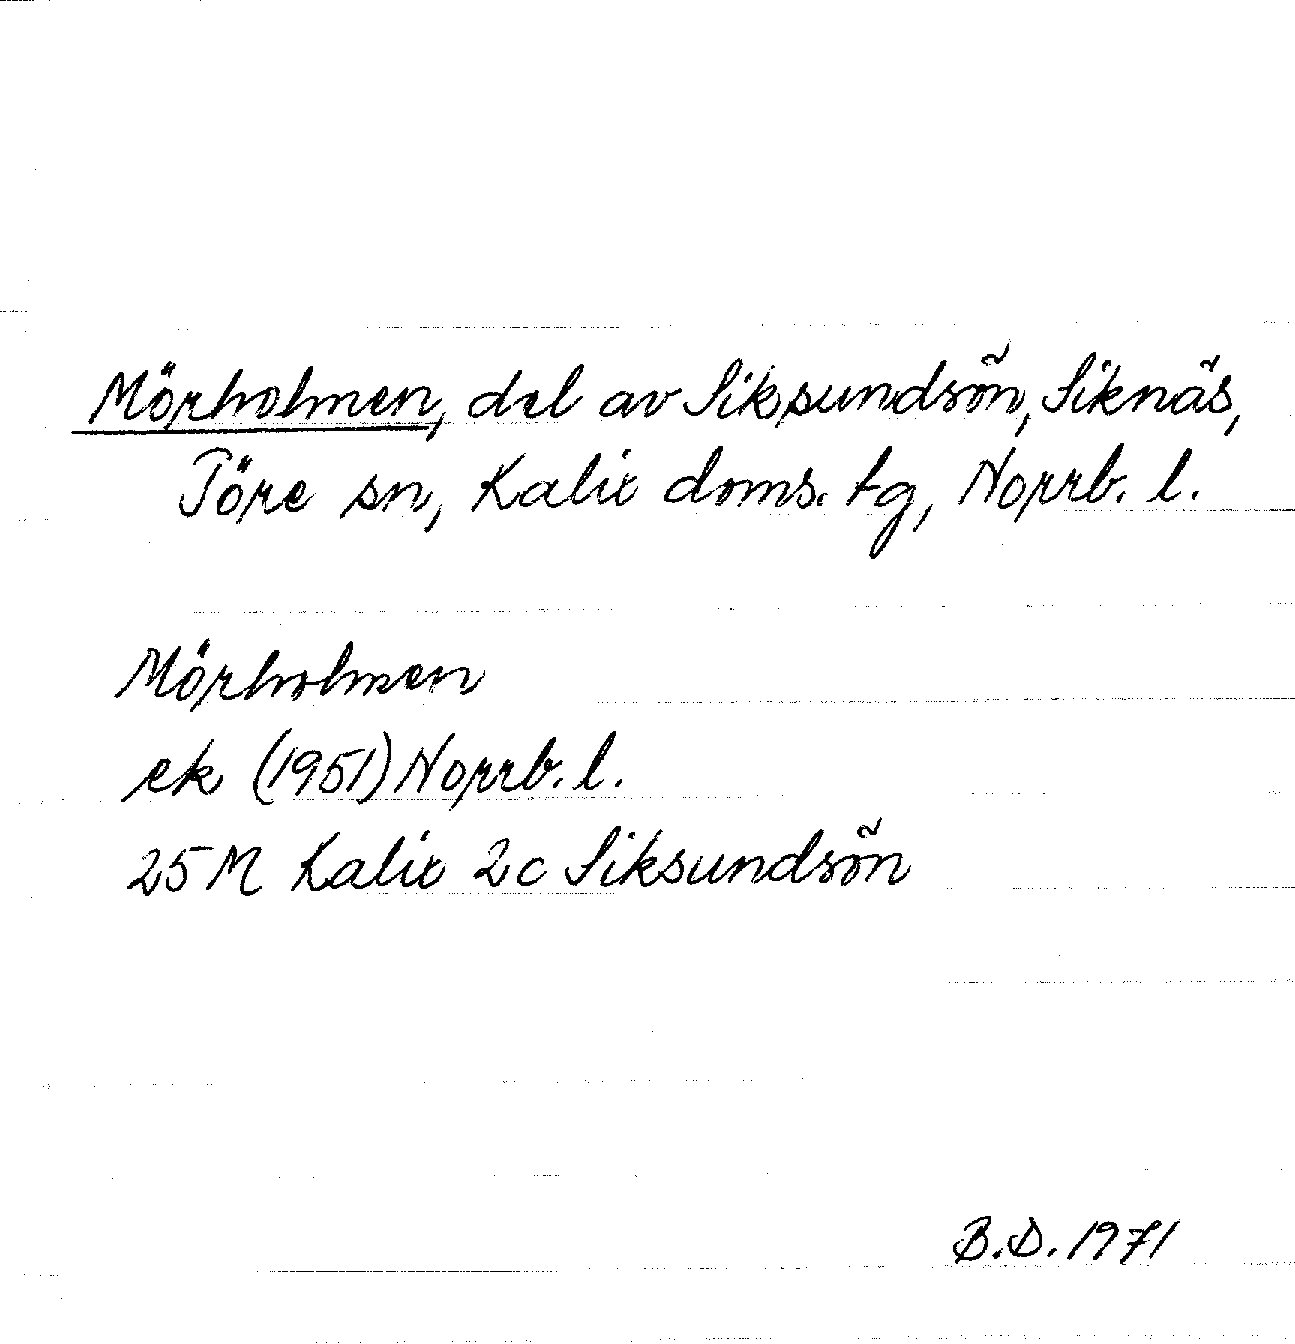 Mörholmen, del av Siksundsön, Siknäs,
Töre sn, Kalix doms. tg, Norrb. l.
Mörholmen
ek (1951) Norrb. l.
25 M Kalix 2c Siksundsön
B.D. 1971